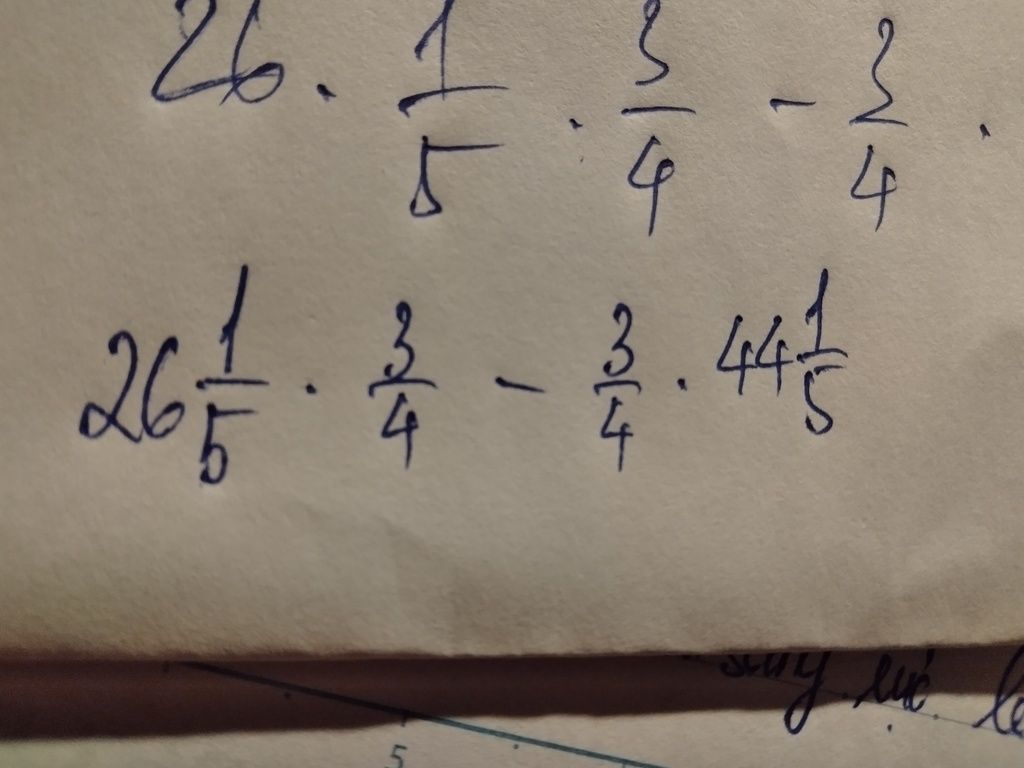 26 . 1/5 . 3/4 - 3/4 .
26 1/5 . 3/4 - 3/4 . 44 1/5
lực
5